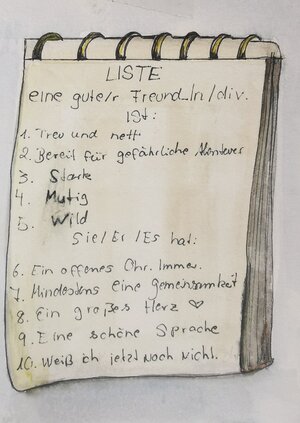 LISTE
eine gute/r Freund_In/div.
Ist:
1. Treu und nett
2. Bereit für gefährliche Abenteuer
3. Stark
4. Mutig
5. Wild
Sie/Er/Es hat:
6. Ein offenes Ohr. Immer.
7. Mindestens eine Gemeinsamkeit
8. Ein großes Herz ♡
9. Eine schöne Sprache
10. Weiß ich jetzt noch nicht.